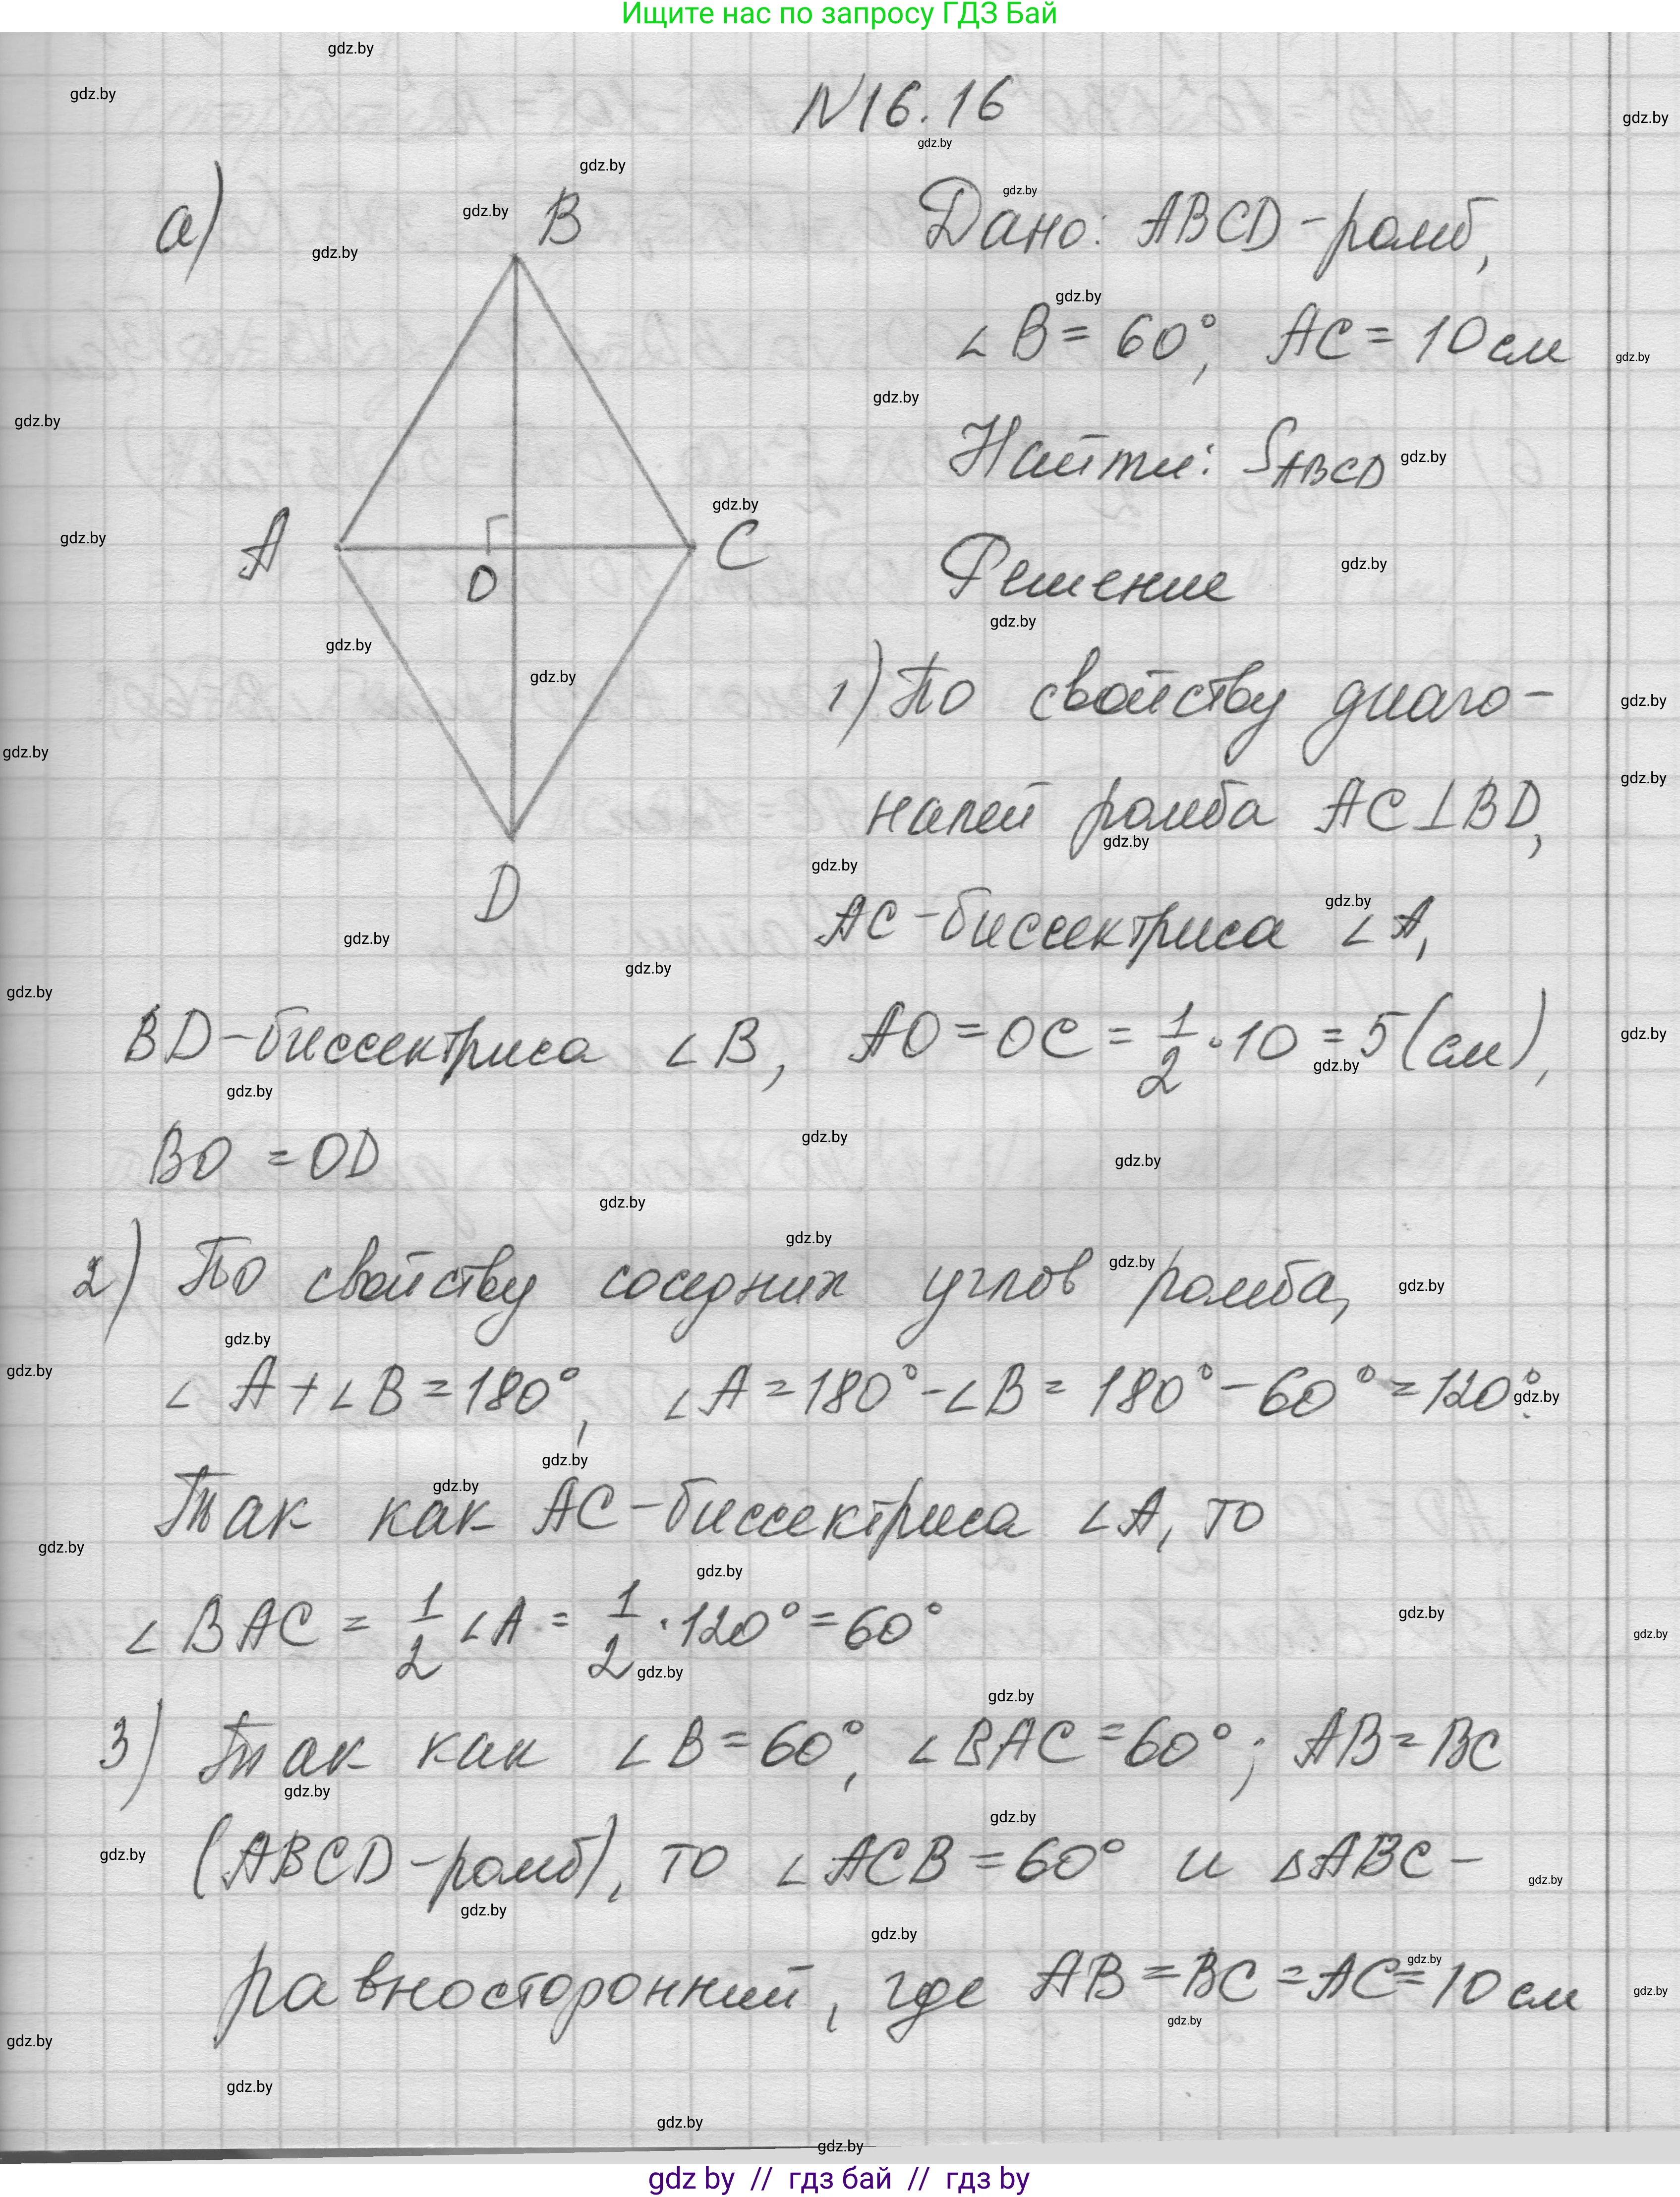 Ищите нас по запросу ГДЗ Бай
N16.16
а)
B
A
C
O
D
Дано: ABCD - ромб,
∠B = 60°, AC = 10 см
Найти: S_ABCD
Решение
1) По свойству диаго-
налей ромба AC⊥BD,
AC - биссектриса ∠A,
BD - биссектриса ∠B, AO = OC = 1/2 · 10 = 5 (см),
BO = OD
2) По свойству соседних углов ромба,
∠A + ∠B = 180°, ∠A = 180° - ∠B = 180° - 60° = 120°.
Так как AC - биссектриса ∠A, то
∠BAC = 1/2 ∠A = 1/2 · 120° = 60°
3) Так как ∠B = 60°, ∠BAC = 60°; AB = BC
(ABCD - ромб), то ∠ACB = 60° и △ABC -
равносторонний, где AB = BC = AC = 10 см
gdz by // гдз бай // гдз by